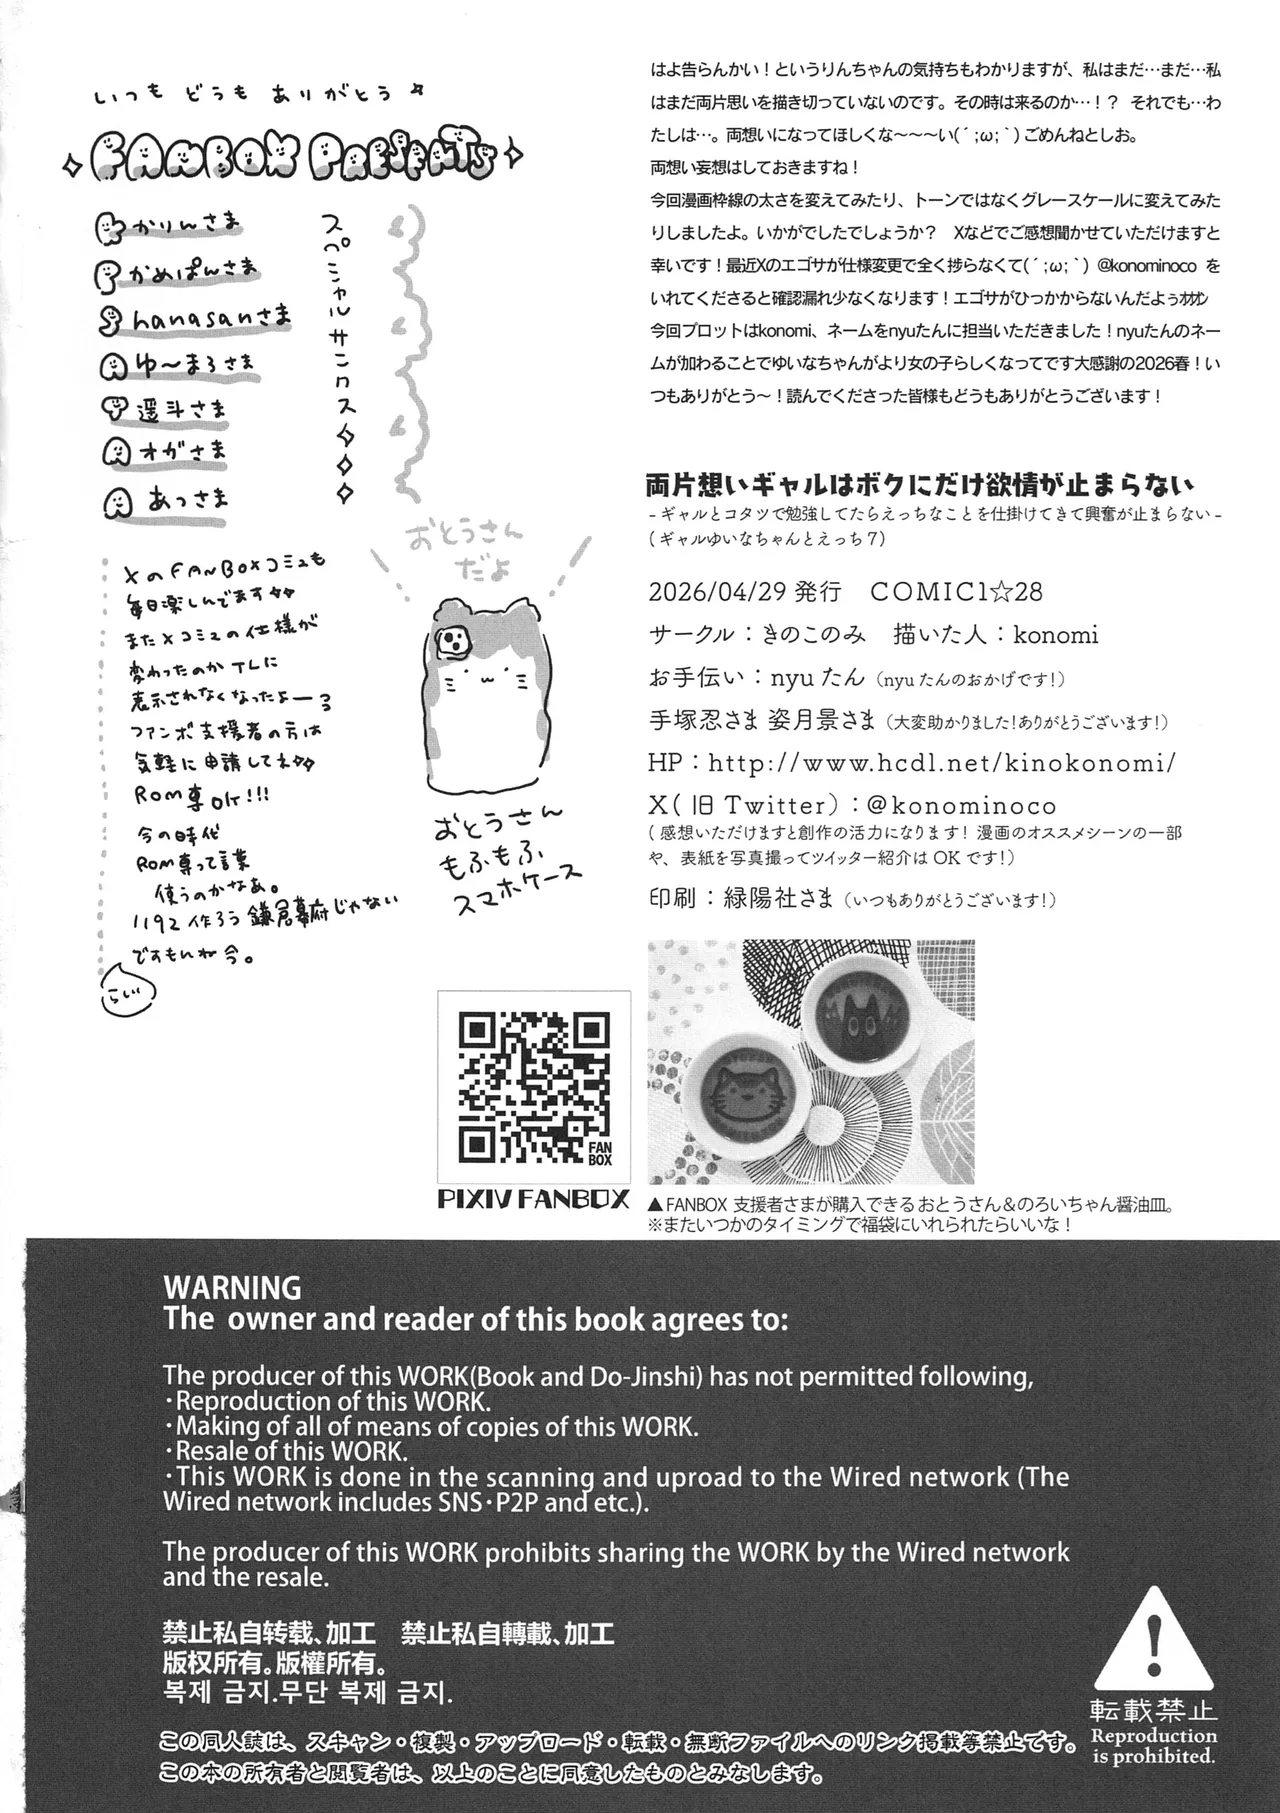 いつも どうも ありがとう
FANBOX PRESENTS
かりんさま
かめぱんさま
hanasanさま
ゆ〜まろさま
遥斗さま
オガさま
あっさま
スペシャルサンクス
XのFANBOXコミュも
毎日楽しんでます
またXコミュの仕様が
変わったのかTLに
表示されなくなったよーろ
ファンボ支援者の方は
気軽に申請してネ
ROM専OK!!!
今の時代
ROM専って言葉
使うのかなぁ。
1192作ろう鎌倉幕府じゃない
ですもんね今。
おとうさん
だよ
おとうさん
もふもふ
スマホケース
FAN
BOX
PIXIV FANBOX
はよ告らんかい！というりんちゃんの気持ちもわかりますが、私はまだ…まだ…私
はまだ両片思いを描き切っていないのです。その時は来るのか…！？ それでも…わ
たしは…。両想いになってほしくな〜〜〜い(´;ω;｀)ごめんねとしお。
両想い妄想はしておきますね！
今回漫画枠線の太さを変えてみたり、トーンではなくグレースケールに変えてみた
りしましたよ。いかがでしたでしょうか？ Xなどでご感想聞かせていただけますと
幸いです！最近Xのエゴサが仕様変更で全く捗らなくて(´;ω;｀) @konominoco を
いれてくださると確認漏れ少なくなります！エゴサがひっかからないんだよぅｵｵﾝ
今回プロットはkonomi、ネームをnyuたんに担当いただきました！nyuたんのネー
ムが加わることでゆいなちゃんがより女の子らしくなってです大感謝の2026春！い
つもありがとう〜！読んでくださった皆様もどうもありがとうございます！
両片想いギャルはボクにだけ欲情が止まらない
- ギャルとコタツで勉強してたらえっちなことを仕掛けてきて興奮が止まらない -
（ギャルゆいなちゃんとえっち７）
2026/04/29 発行 COMIC1☆28
サークル：きのこのみ 描いた人：konomi
お手伝い：nyu たん（nyu たんのおかげです！）
手塚忍さま 姿月景さま（大変助かりました！ありがとうございます！）
HP：http://www.hcdl.net/kinokonomi/
X( 旧 Twitter)：@konominoco
( 感想いただけますと創作の活力になります！ 漫画のオススメシーンの一部
や、表紙を写真撮ってツイッター紹介は OK です！)
印刷：緑陽社さま（いつもありがとうございます！）
▲FANBOX 支援者さまが購入できる おとうさん＆のろいちゃん醤油皿。
※またいつかのタイミングで福袋にいれられたらいいな！
WARNING
The owner and reader of this book agrees to:
The producer of this WORK(Book and Do-Jinshi) has not permitted following,
・Reproduction of this WORK.
・Making of all of means of copies of this WORK.
・Resale of this WORK.
・This WORK is done in the scanning and uproad to the Wired network (The
Wired network includes SNS・P2P and etc.).
The producer of this WORK prohibits sharing the WORK by the Wired network
and the resale.
禁止私自转载、加工 禁止私自轉載、加工
版权所有。版權所有。
복제 금지.무단 복제 금지.
この同人誌は、スキャン・複製・アップロード・転載・無断ファイルへのリンク掲載等禁止です。
この本の所有者と閲覧者は、以上のことに同意したものとみなします。
転載禁止
Reproduction
is prohibited.